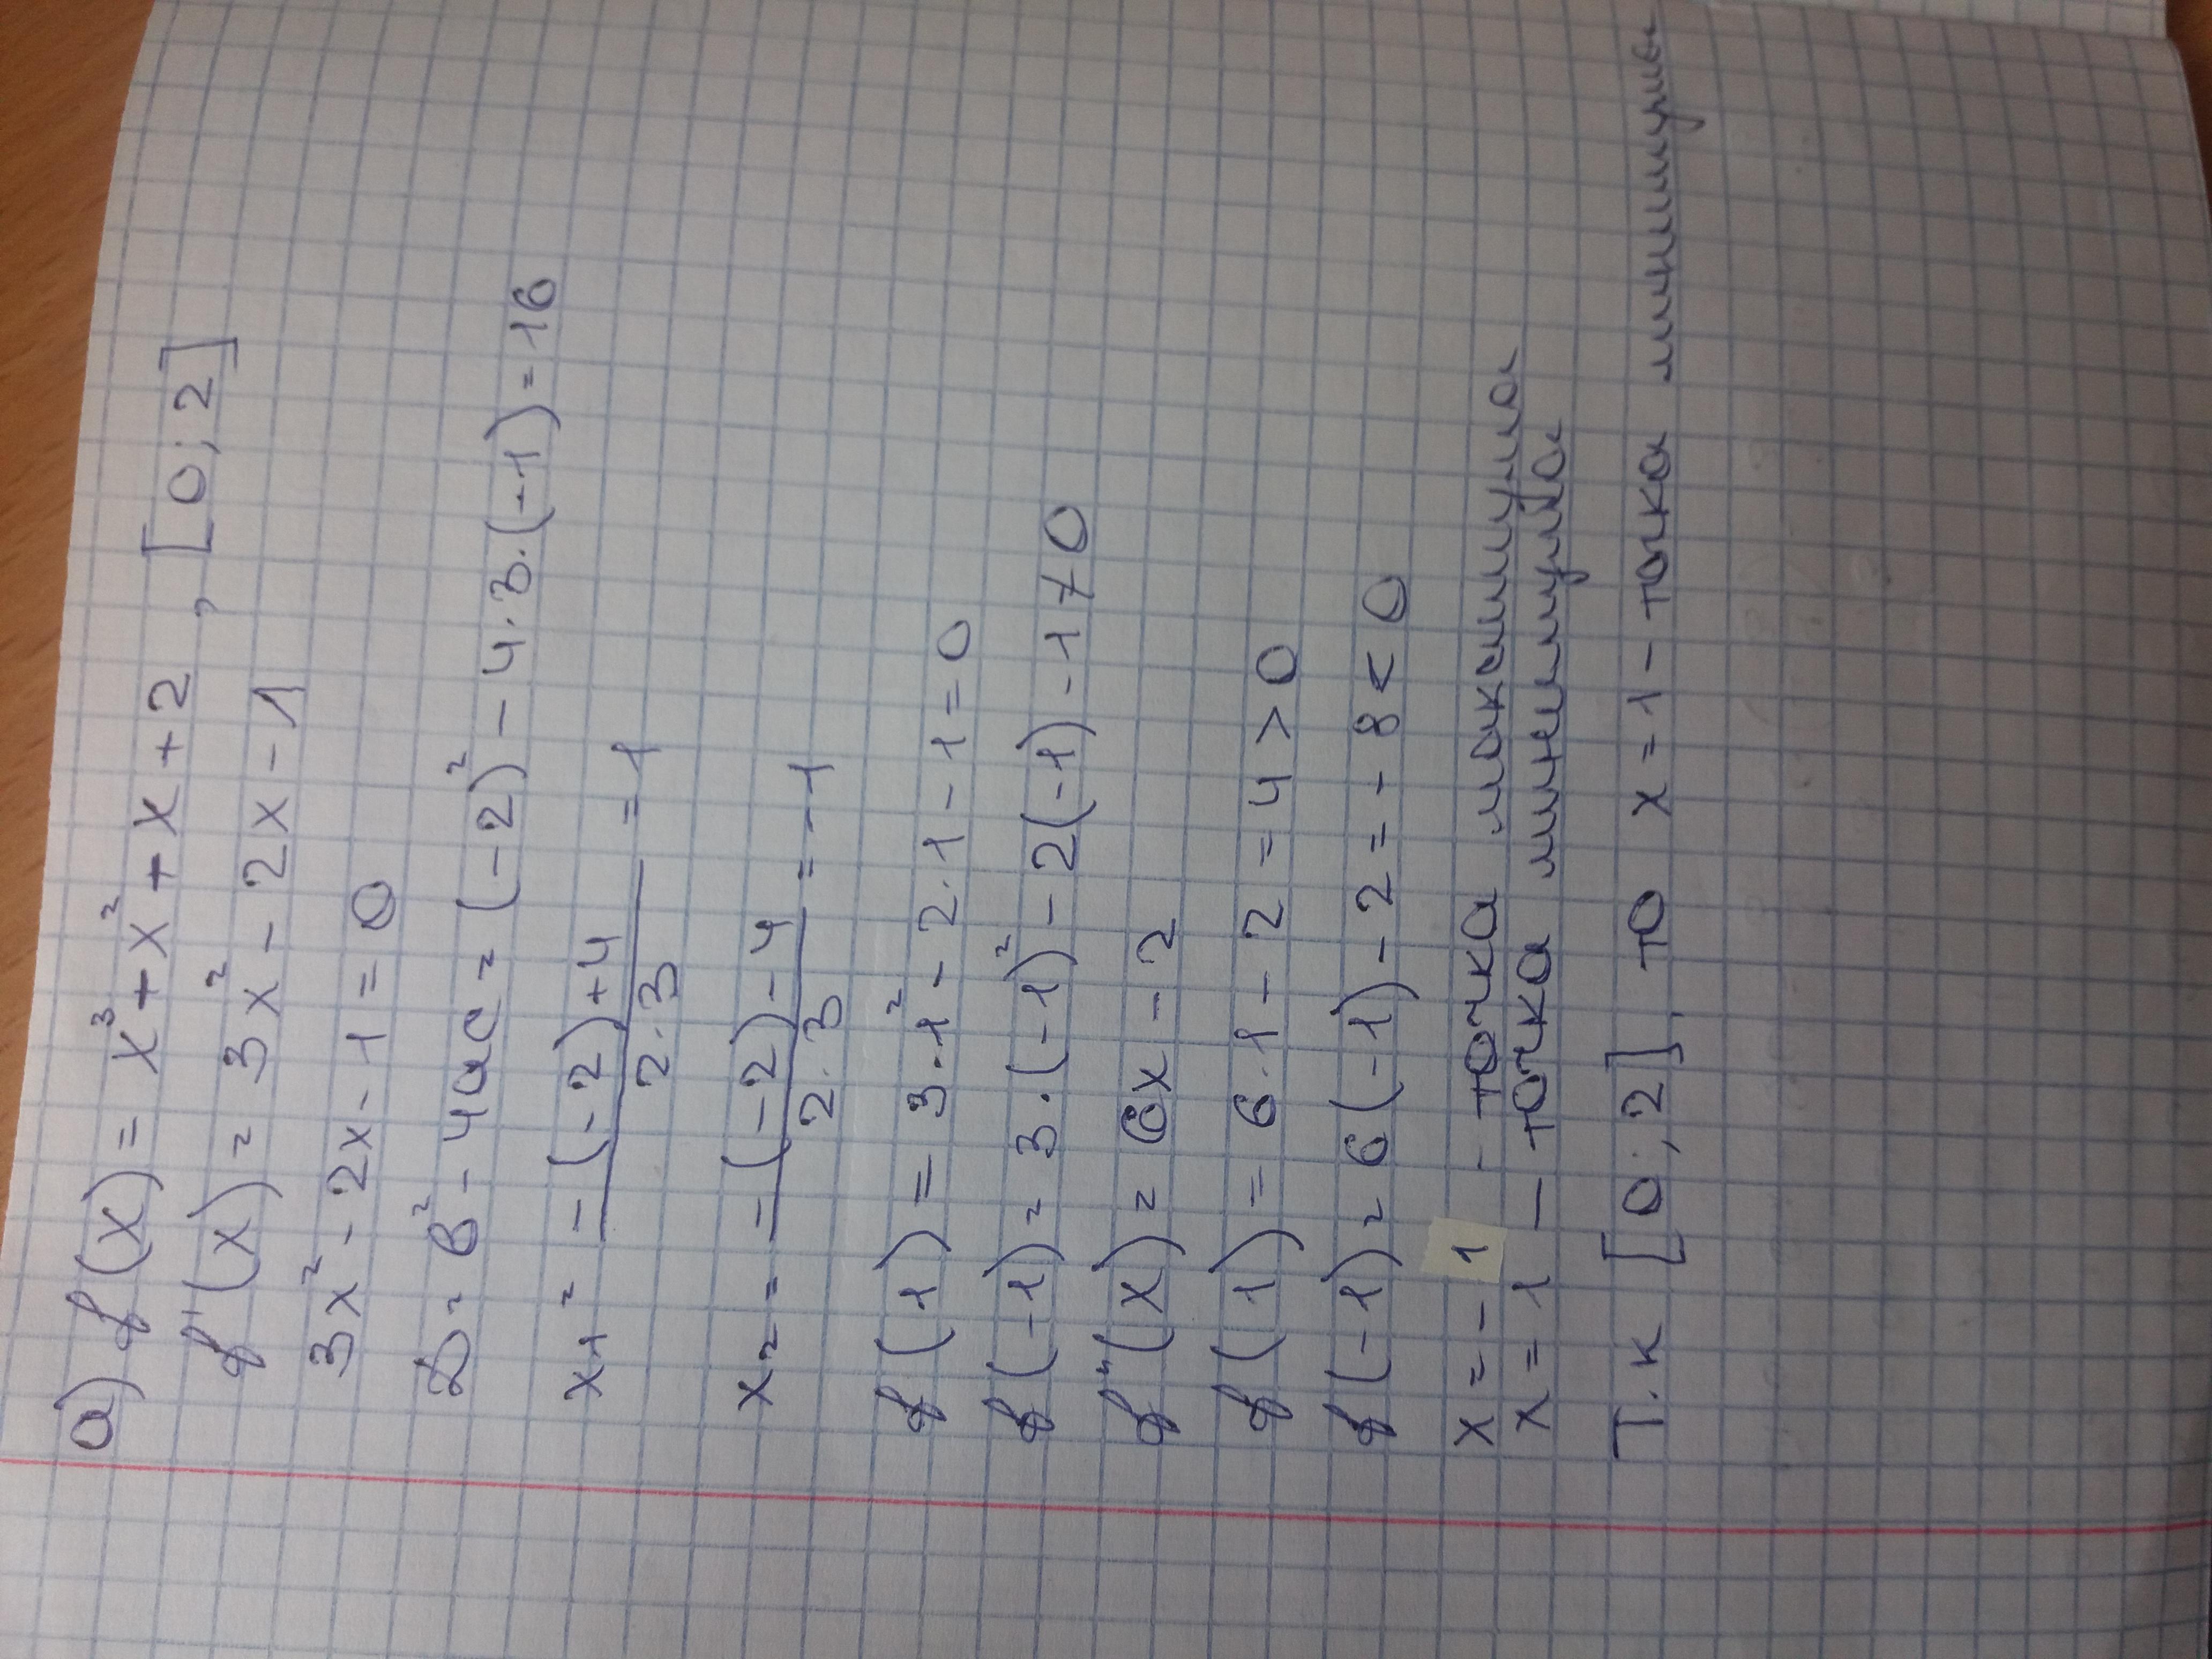 а) f(x) = x³ + x² + x + 2 , [0; 2]
f'(x) = 3x² - 2x - 1
3x² - 2x - 1 = 0
D = в² - 4ас = (-2)² - 4·3·(-1) = 16
x₁ = -(-2)+4 / 2·3 = 1
x₂ = -(-2)-4 / 2·3 = -1
f(1) = 3·1² - 2·1 - 1 = 0
f(-1) = 3·(-1)² - 2(-1) - 1 ≠ 0
f''(x) = 6x - 2
f(1) = 6·1 - 2 = 4 > 0
f(-1) = 6(-1) - 2 = -8 < 0
x = -1 - точка максимума
x = 1 — точка минимума
Т.к [0; 2], то x = 1 - точка минимума